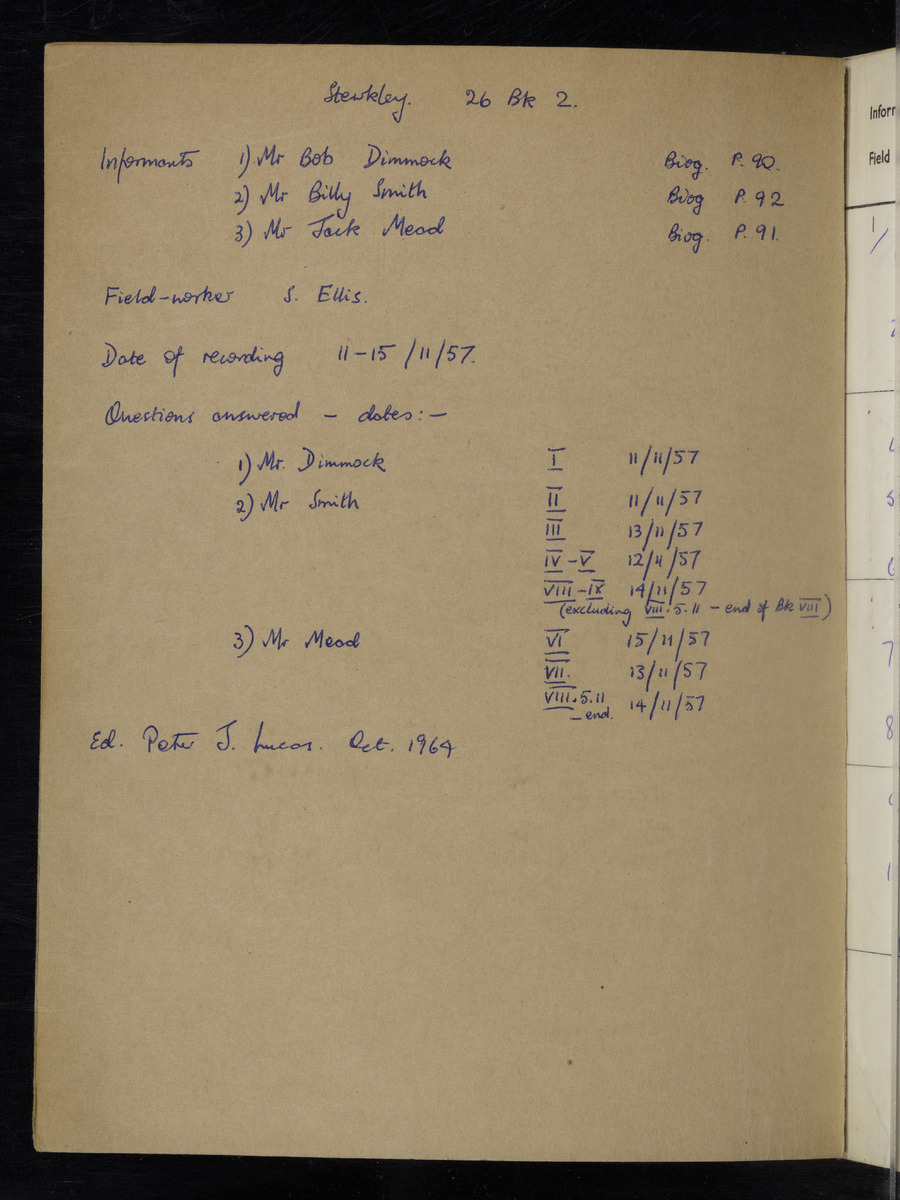 Stewkley. 26 Bk 2.
Informants 1) Mr Bob Dimmock Biog. P. 90.
2) Mr Billy Smith Biog P. 92
3) Mr Jack Mead Biog. P. 91.
Field-worker S. Ellis.
Date of recording 11-15/11/57.
Questions answered - dates:-
1) Mr. Dimmock I 11/11/57
2) Mr Smith II 11/11/57
III 13/11/57
IV-V 12/11/57
VIII-IX 14/11/57
(excluding VIII.5.11 - end of Bk VIII)
3) Mr Mead VI 15/11/57
VII. 13/11/57
VIII.5.11 14/11/57
- end.
Ed. Peter J. Lucas. Oct. 1964
Field
1/
7
8